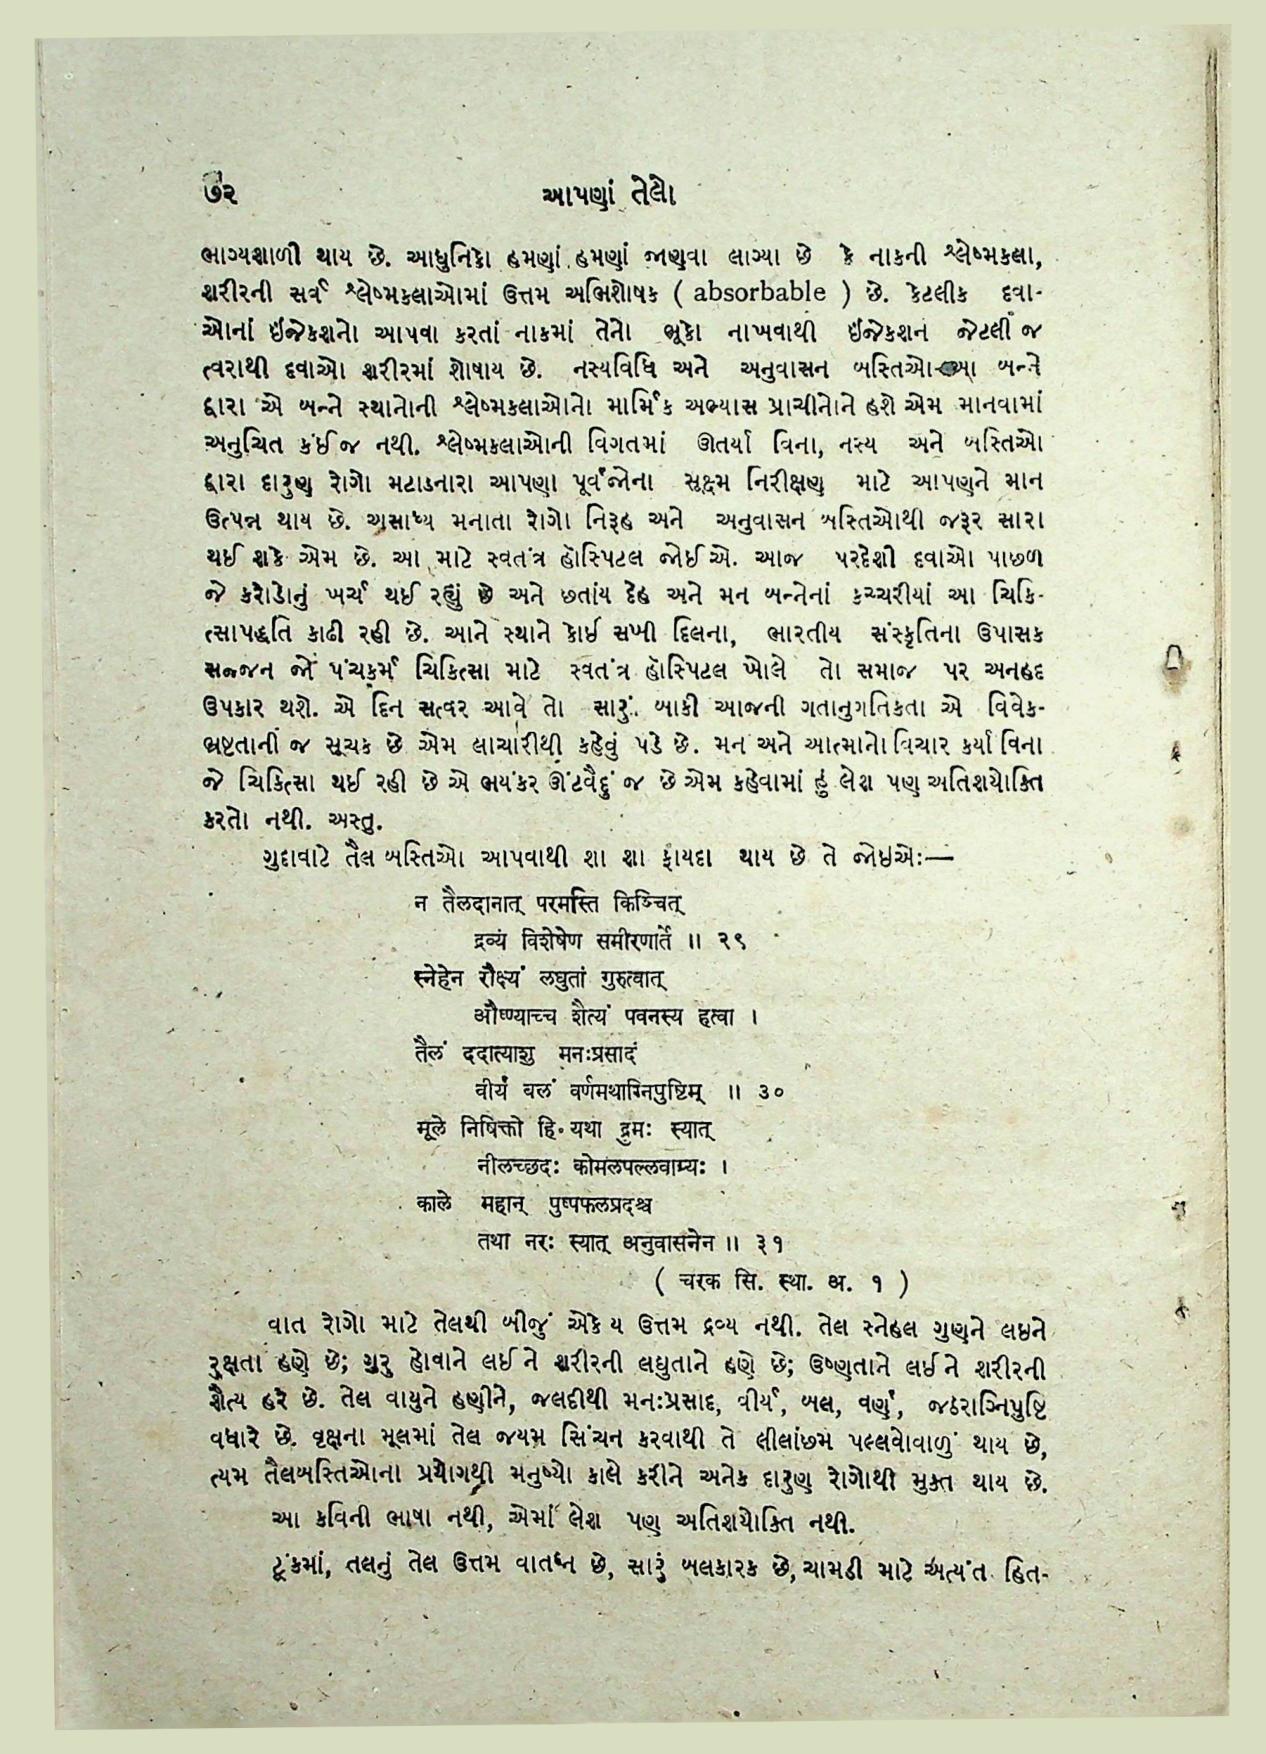 ૭૨ આપણાં તેલો
ભાગ્યશાળી થાય છે. આધુનિકો હમણાં હમણાં જાણવા લાગ્યા છે કે નાકની શ્લેષ્મકલા,
શરીરની સર્વ શ્લેષ્મકલાઓમાં ઉત્તમ અભિશોષક ( absorbable ) છે. કેટલીક દવા-
ઓનાં ઇંજેકશનો આપવા કરતાં નાકમાં તેનો ભૂકો નાખવાથી ઇંજેકશન જેટલી જ
ત્વરાથી દવાઓ શરીરમાં શોષાય છે. નસ્યવિધિ અને અનુવાસન બસ્તિઓ-આ બન્ને
દ્વારા એ બન્ને સ્થાનોની શ્લેષ્મકલાઓનો માર્મિક અભ્યાસ પ્રાચીનોને હશે એમ માનવામાં
અનુચિત કંઈ જ નથી. શ્લેષ્મકલાઓની વિગતમાં ઊતર્યા વિના, નસ્ય અને બસ્તિઓ
દ્વારા દારુણ રોગો મટાડનારા આપણા પૂર્વજોના સૂક્ષ્મ નિરીક્ષણ માટે આપણને માન
ઉત્પન્ન થાય છે. અસાધ્ય મનાતા રોગો નિરૂહ અને અનુવાસન બસ્તિઓથી જરૂર સારા
થઈ શકે એમ છે. આ માટે સ્વતંત્ર હૉસ્પિટલ જોઈએ. આજ પરદેશી દવાઓ પાછળ
જે કરોડોનું ખર્ચ થઈ રહ્યું છે અને છતાંય દેહ અને મન બન્નેનાં કચ્ચરીયાં આ ચિકિ-
ત્સાપદ્ધતિ કાઢી રહી છે. આને સ્થાને કોઈ સખી દિલના, ભારતીય સંસ્કૃતિના ઉપાસક
સજ્જન જો પંચકર્મ ચિકિત્સા માટે સ્વતંત્ર હૉસ્પિટલ ખોલે તો સમાજ પર અનહદ
ઉપકાર થશે. એ દિન સત્વર આવે તો સારું. બાકી આજની ગતાનુગતિકતા એ વિવેક-
ભ્રષ્ટતાની જ સૂચક છે એમ લાચારીથી કહેવું પડે છે. મન અને આત્માનો વિચાર કર્યા વિના
જે ચિકિત્સા થઈ રહી છે એ ભયંકર ઊંટવૈદું જ છે એમ કહેવામાં હું લેશ પણ અતિશયોક્તિ
કરતો નથી. અસ્તુ.
ગુદાવાટે તૈલ બસ્તિઓ આપવાથી શા શા ફાયદા થાય છે તે જોઇએઃ—
न तैलदानात् परमस्ति किञ्चित्
द्रव्यं विशेषेण समीरणार्ते ॥ २९
स्नेहेन रौक्ष्यं लघुतां गुरुत्वात्
औष्ण्याच्च शैत्यं पवनस्य हृत्वा ।
तैलं ददात्याशु मनःप्रसादं
वीर्यं बलं वर्णमथाग्निपुष्टिम् ॥ ३०
मूले निषिक्तो हि यथा द्रुमः स्यात्
नीलच्छदः कोमलपल्लवाग्र्यः ।
काले महान् पुष्पफलप्रदश्च
तथा नरः स्यात् अनुवासनेन ॥ ३१
( चरक सि. स्था. अ. १ )
વાત રોગો માટે તેલથી બીજું એકેય ઉત્તમ દ્રવ્ય નથી. તેલ સ્નેહલ ગુણને લઇને
રુક્ષતા હણે છે; ગુરુ હોવાને લઈને શરીરની લઘુતાને હણે છે; ઉષ્ણતાને લઈને શરીરની
શૈત્ય હરે છે. તેલ વાયુને હણીને, જલદીથી મનઃપ્રસાદ, વીર્ય, બલ, વર્ણ, જઠરાગ્નિપુષ્ટિ
વધારે છે. વૃક્ષના મૂલમાં તેલ જયમ સિંચન કરવાથી તે લીલાંછમ પલ્લવોવાળું થાય છે,
ત્યમ તૈલબસ્તિઓના પ્રયોગથી મનુષ્યો કાલે કરીને અનેક દારુણ રોગોથી મુક્ત થાય છે.
આ કવિની ભાષા નથી, એમાં લેશ પણ અતિશયોક્તિ નથી.
ટૂંકમાં, તલનું તેલ ઉત્તમ વાતઘ્ન છે, સારું બલકારક છે, ચામડી માટે અત્યંત હિત-